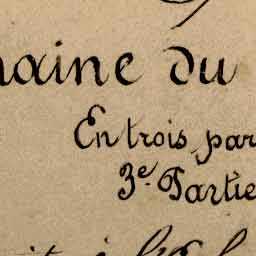 maine du
En trois par
3e. Partie